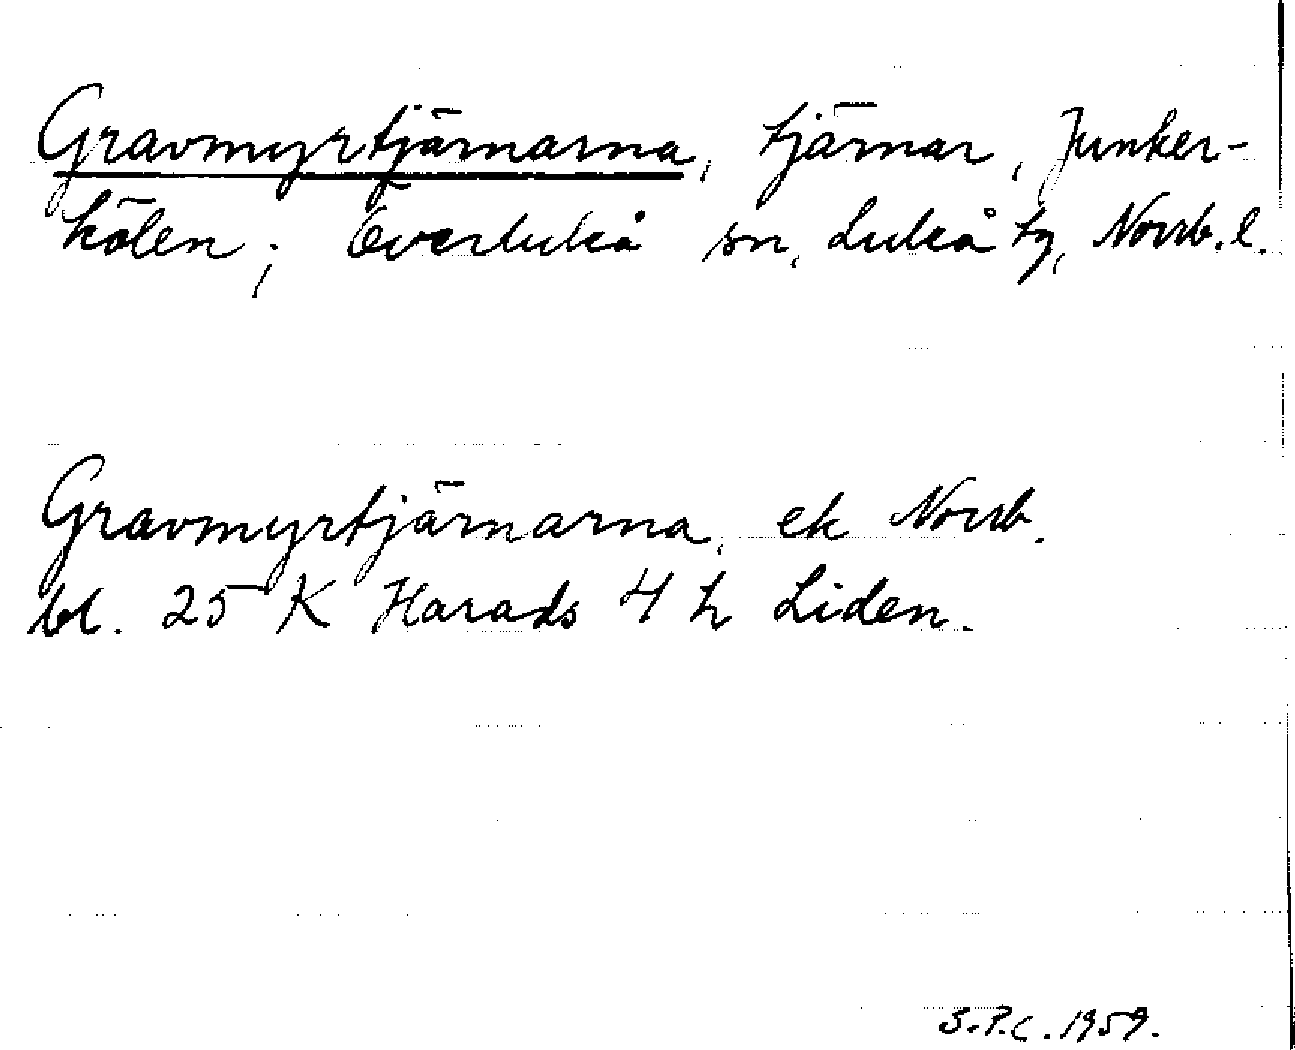 Gravmyrtjärnarna, tjärnar, Junker-
kölen; Överluleå sn, Luleå tg, Norrb. l.
Gravmyrtjärnarna, ek Norrb.
bl. 25 K Harads 4 h Liden.
S.P.C. 1959.